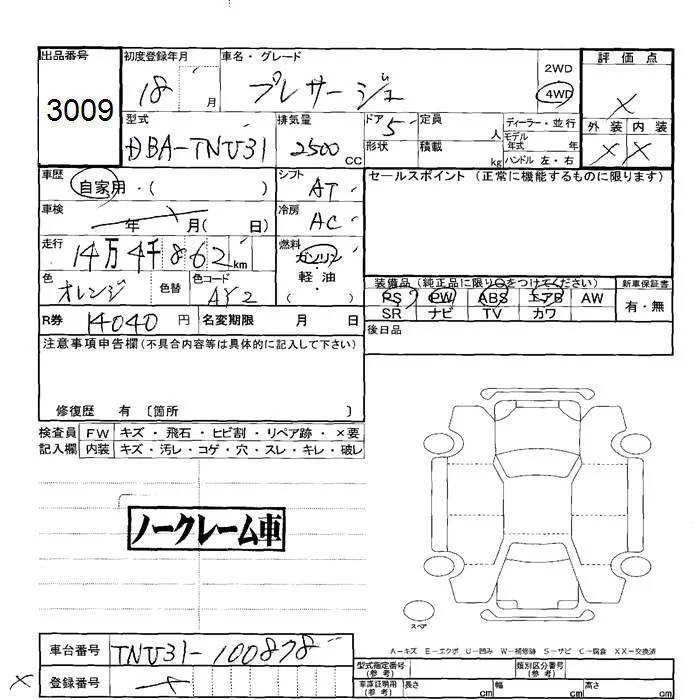 出品番号
3009
初度登録年月
18 月
車名・グレード
プレサージュ
2WD
4WD
評価点
×
外装 内装
× ×
型式
DBA-TNU31
排気量
2500 CC
ドア 5
形状
定員 人
積載 kg
ディーラー・並行
モデル年式 年
ハンドル 左・右
車歴
自家用・( )
シフト
AT
セールスポイント (正常に機能するものに限ります)
車検
年 月( 日)
冷房
AC
走行
14万4千862 km
燃料
ガソリン
軽・油
( )
色
オレンジ
色替
色コード
装備品 (純正品に限り○をつけてください)
新車保証書
PS PW ABS エアB AW
有・無
SR ナビ TV カワ
R券 14040 円
名変期限 月 日
後日品
注意事項申告欄 (不具合内容等は具体的に記入して下さい)
修復歴 有 〔箇所 〕
検査員記入欄
FW キズ・飛石・ヒビ割・リペア跡・×要
内装 キズ・汚レ・コゲ・穴・スレ・キレ・破レ
ノークレーム車
スペア
A-キズ E-エクボ U-凹み W-補修跡 S-サビ C-腐食 XX-交換済
車台番号
TNU31-100878
登録番号
型式指定番号(参考)
類別区分番号(参考)
車庫証明用(参考) 長さ cm 幅 cm 高さ cm